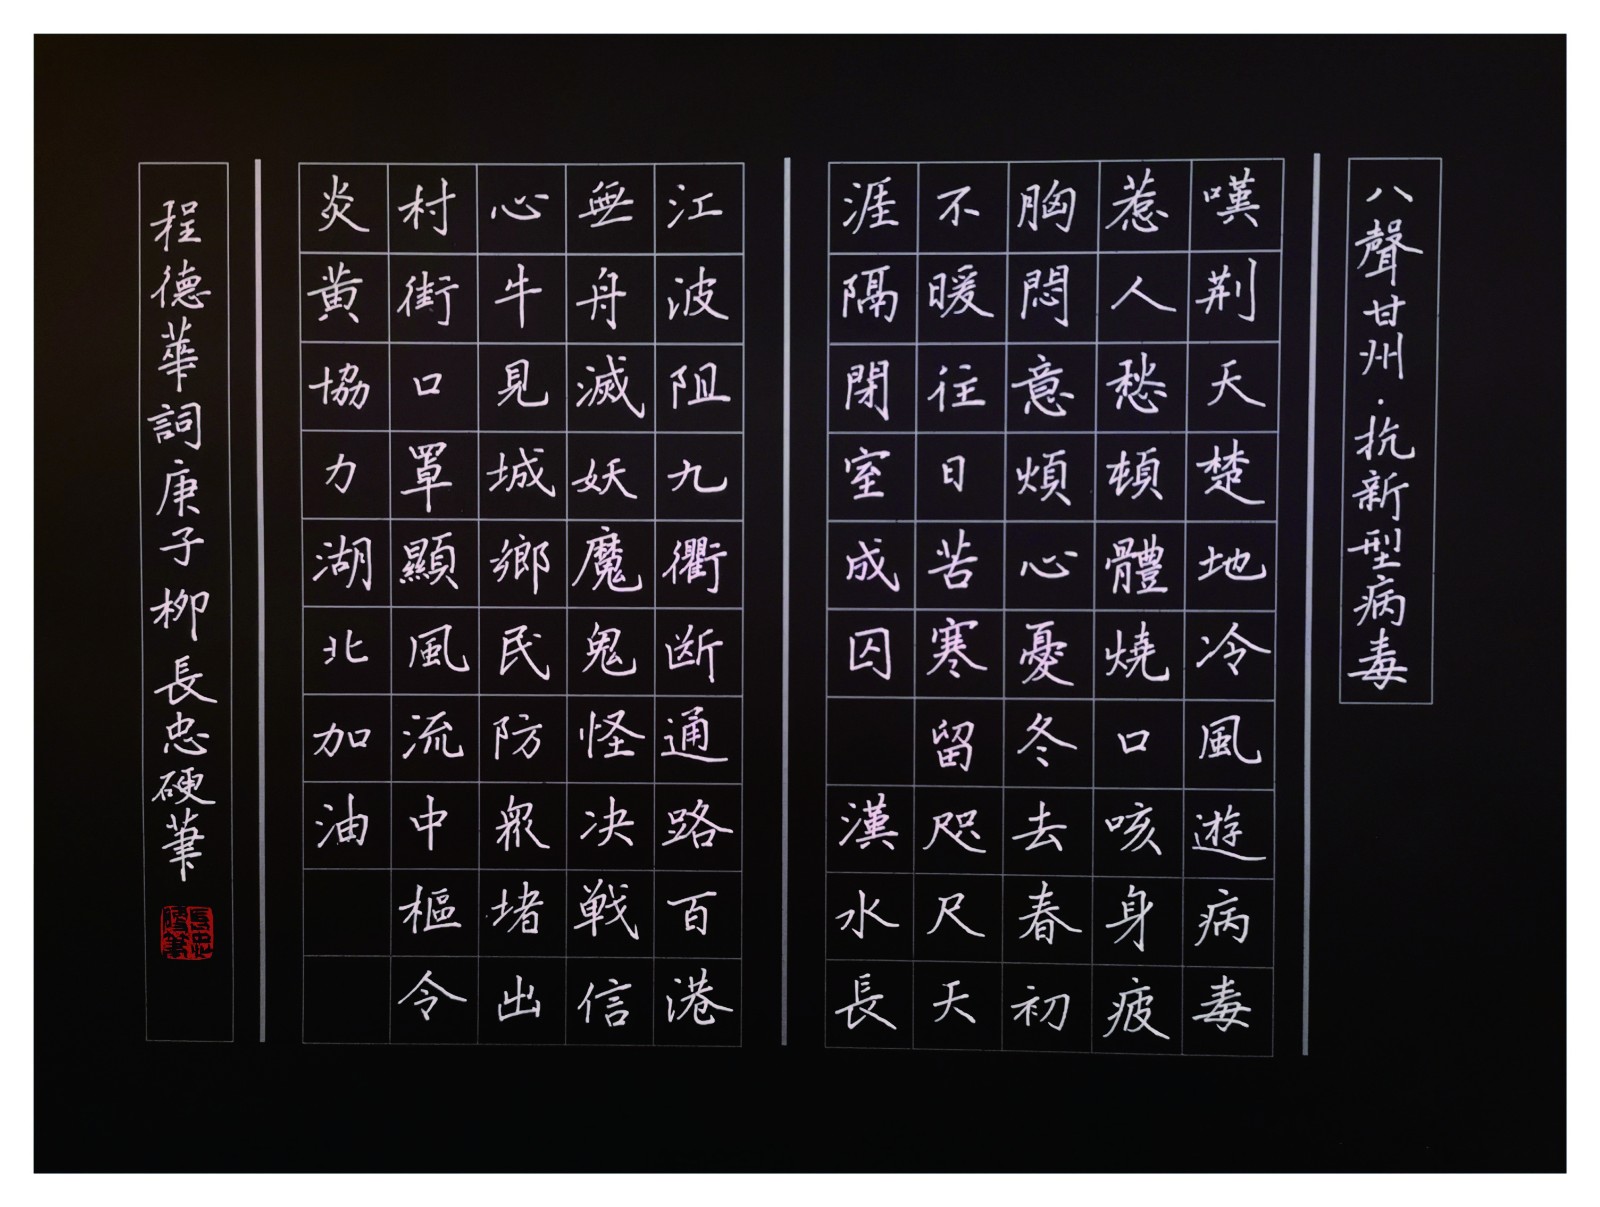 八聲甘州·抗新型病毒
嘆荆天楚地冷風遊病毒
惹人愁頓體燒口咳身疲
胸悶意煩心憂冬去春初
不暖往日苦寒留咫尺天
涯隔閉室成囚 漢水長
江波阻九衢断通路百港
無舟滅妖魔鬼怪决戰信
心牛見城鄉民防衆堵出
村街口罩顯風流中樞令
炎黄協力湖北加油
程德華詞庚子柳長忠硬筆